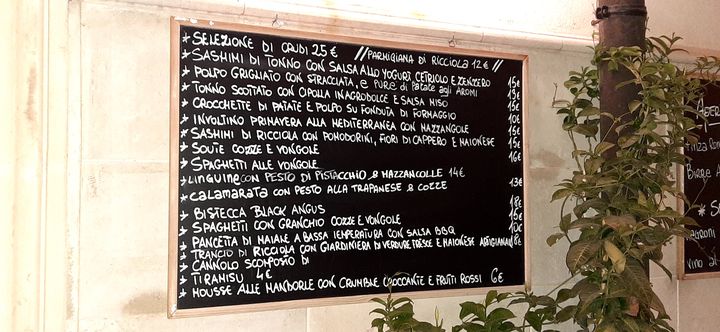 * SELEZIONE DI CRUDI 25€ // PARMIGIANA DI RICCIOLA 12€ //
* SASHIMI DI TONNO CON SALSA ALLO YOGURT CETRIOLO E ZENZERO 15€
* POLPO GRIGLIATO CON STRACCIATA, e PURE di PATATE agli AROMI 15€
* TONNO SCOTTATO CON CIPOLLA IN AGRODOLCE E SALSA MISO 15€
* CROCCHETTE DI PATATE E POLPO SU FONDUTA DI FORMAGGIO 10€
* INVOLTINO PRIMAVERA ALLA MEDITERRANEA CON MAZZANGOLE
* SASHIMI DI RICCIOLA CON POMODORINI, FIORI DI CAPPERO E MAIONESE 15€
* SOUTÉ COZZE E VONGOLE 15€
* SPAGHETTI ALLE VONGOLE 16€
* LINGUINE CON PESTO DI PISTACCHIO e MAZZANCOLLE 14€
* CALAMARATA CON PESTO ALLA TRAPANESE e COZZE 13€
* BISTECCA BLACK ANGUS 18€
* SPAGHETTI CON GRANCHIO COZZE E VONGOLE 15€
* PANCETTA DI MAIALE A BASSA TEMPERATURA CON SALSA BBQ
* TRANCIO DI RICCIOLA CON GIARDINIERA DI VERDURE FRESCE E MAIONESE ARTIGIANALE 18€
* CANNOLO SCOMPOSTO DI
* TIRAMISU 4€
* MOUSSE ALLE MANDORLE CON CRUMBLE CROCCANTE E FRUTTI ROSSI 6€
BIRRE
VINO